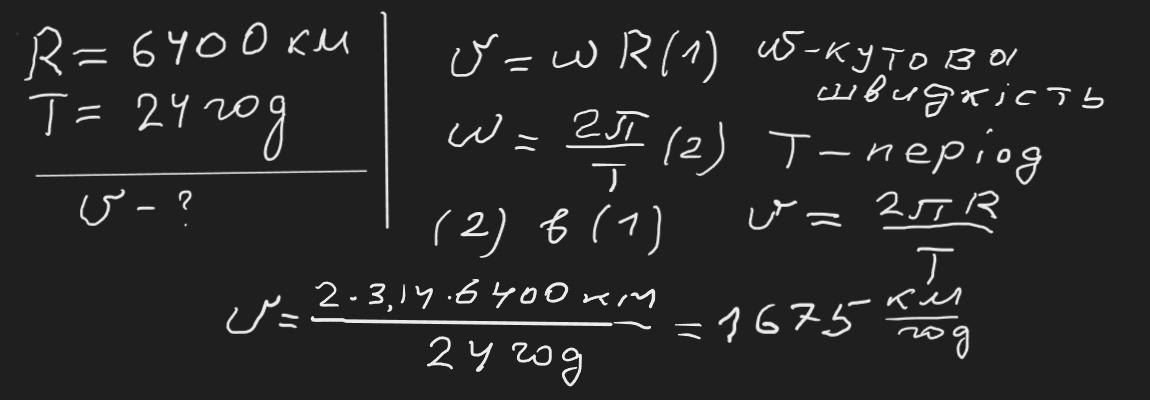 R = 6400 км
T = 24 год
υ - ?
υ = ω R (1) ω - кутова швидкість
ω = 2π/T (2) T - період
(2) в (1) υ = 2πR/T
υ = 2·3,14·6400 км / 24 год = 1675 км/год